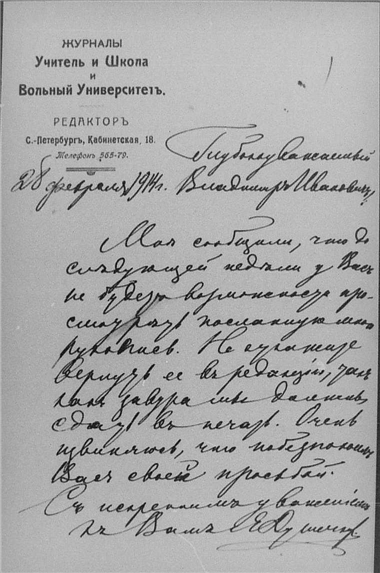 ЖУРНАЛЫ
Учитель и Школа
и
Вольный Университетъ.
РЕДАКТОРЪ
С.-Петербургъ, Кабинетская, 18.
Телефонъ 565-79.
Глубокоуважаемый
28 февраля 1914 г. Владимиръ Ивановичъ,
Мнѣ сообщили, что до
следующей недѣли у Васъ
не будетъ возможности про-
смотрѣть посланную мною
рукопись. Не откажите
вернуть ее въ редакцію, такъ
какъ завтра мы должны
сдать въ печать. Очень
извиняюсь, что побезпокоилъ
Васъ своей просьбой.
Съ искреннимъ уваженіемъ
къ Вамъ